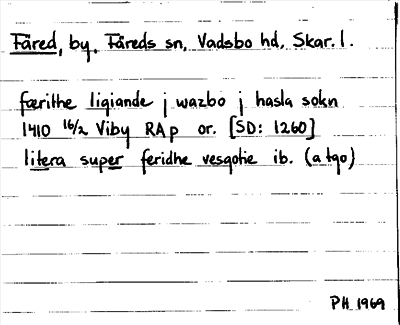 Fåred, by, Fåreds sn, Vadsbo hd, Skar. l.
færithe ligiande j wazbo j hasla sokn
1410 16/2 Viby RA p or. [SD: 1260]
litera super feridhe vesgotie ib. (a tgo)
PH 1969